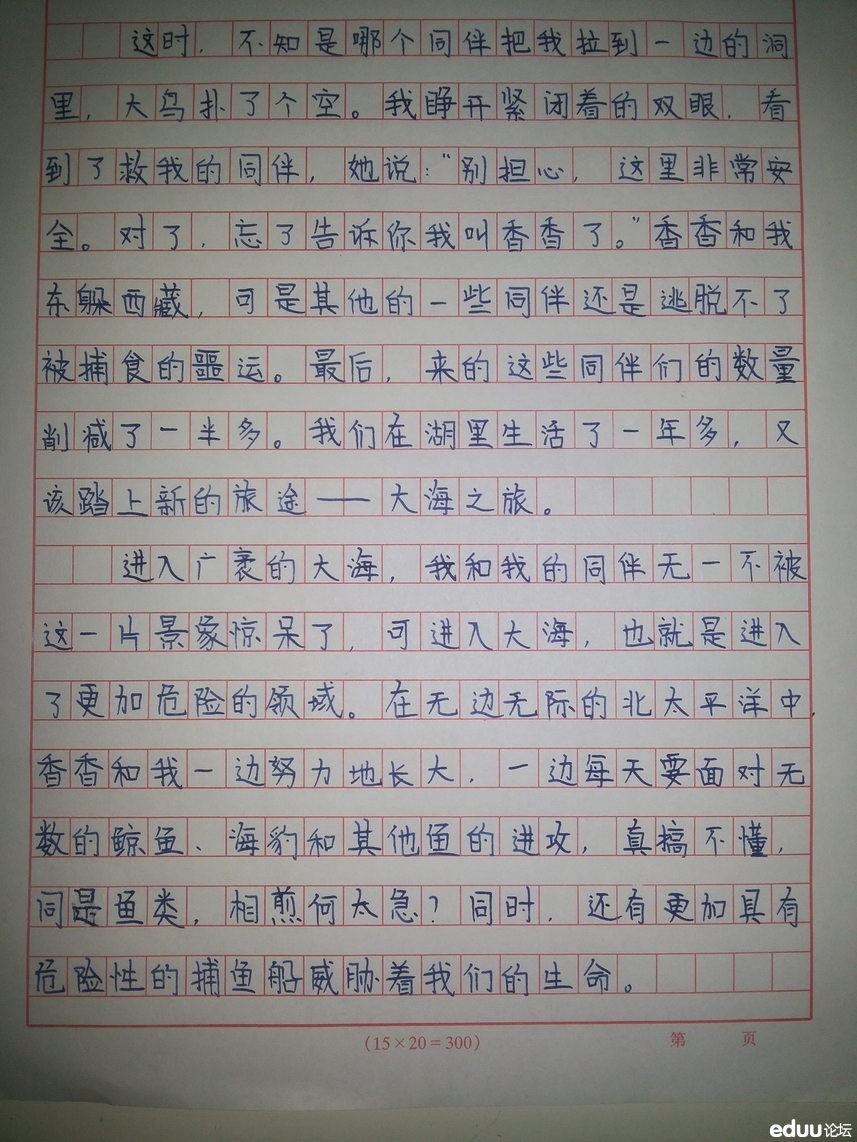 这时，不知是哪个同伴把我拉到一边的洞
里，大鸟扑了个空。我睁开紧闭着的双眼，看
到了救我的同伴，她说：“别担心，这里非常安
全。对了，忘了告诉你我叫香香了。”香香和我
东躲西藏，可是其他的一些同伴还是逃脱不了
被捕食的噩运。最后，来的这些同伴们的数量
削减了一半多。我们在湖里生活了一年多，又
该踏上新的旅途——大海之旅。
进入广袤的大海，我和我的同伴无一不被
这一片景象惊呆了，可进入大海，也就是进入
了更加危险的领域。在无边无际的北太平洋中，
香香和我一边努力地长大，一边每天要面对无
数的鲸鱼、海豹和其他鱼的进攻，真搞不懂，
同是鱼类，相煎何太急？同时，还有更加具有
危险性的捕鱼船威胁着我们的生命。
(15×20=300)
第 页
eduu论坛